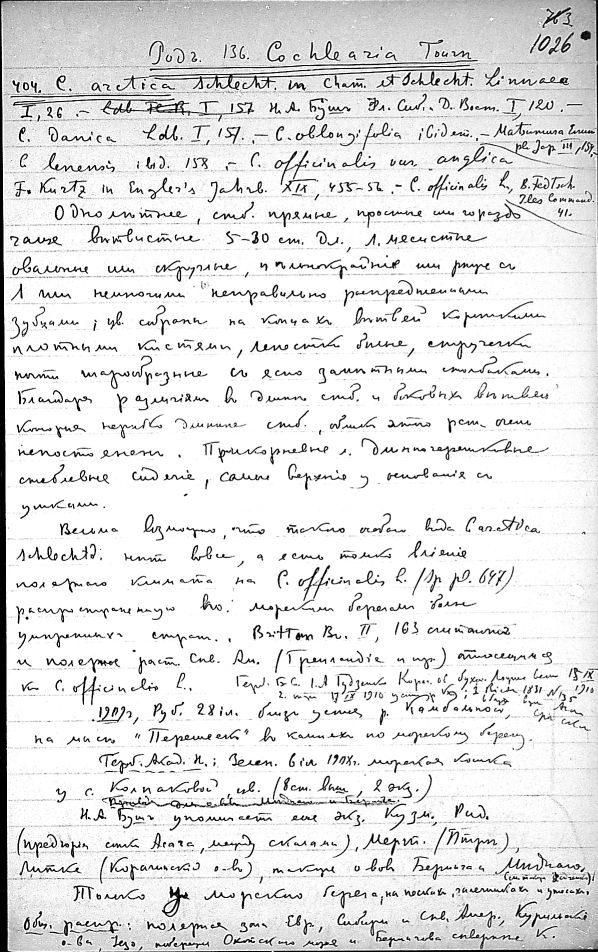 763
1026
Родъ 136. Cochlearia Tourn
404. C. arctica Schlecht. in Cham. et Schlecht. Linnaea
I, 26. – Ldb. Fl. R. I, 157 Н. А. Бушъ Фл. Сиб. Д. Вост. I 120. –
C. Danica Ldb. I, 157. – C. oblongifolia ibidem. – Matsumura Enum pl. Jap. III, 154, –
C. lenensis ibid. 158, – C. officinalis var. anglica
F. Kurtz in Engler's Jahrb. XIX, 455-56. – C. officinalis L., B. Fedtsch.
Iles Command. 41.
Однолѣтнее, стб. прямые, простые или гораздо
чаще вѣтвистые 5–30 cm. дл., л. мясистые
овальные или округлые, цѣльнокрайніе или рѣже съ
1 или немногими неправильно распредѣленными
зубцами; цв. собраны на концахъ вѣтвей короткими
плотными кистями, лепестки бѣлые, стручечки
почти шарообразные съ ясно замѣтными столбиками.
Благодаря различіямъ въ длинѣ стб. и боковыхъ вѣтвей
которыя нерѣдко длиннѣе стб., обликъ этого раст. очень
непостояненъ. Прикорневые л. длинночерешковые
стеблевые сидячіе, самые верхніе у основанія съ
ушками.
Весьма возможно, что такого особаго вида C. arctica
Schlechtd. нѣтъ вовсе, а есть только вліяніе
полярнаго климата на C. officinalis L. (Sp. pl. 647)
распространенную по морскимъ берегамъ болѣе
умѣренныхъ странъ. Britton Br. II, 163 считаютъ
и полярное раст. Сѣв. Ам. (Гренландіи и пр) относящимся
къ C. officinalis L.
1909г, Руб. 28 іл. близъ устья р. Камбальной,
на мысѣ "Перешеекъ" въ камняхъ по морскому берегу.
Герб. Акад. Н.: Зелен. 6 іл 1908г. морская кошка
у с. Колпаковой, цв. (8 cm. выш, 2 экз.)
Н. А. Бушъ упоминаетъ еще экз. Кузм., Рид.
(предгорія Асача, между скалами), Мерт. (Птри),
Литке (Карагинскій о-въ), также о-вовъ Беринга и Мѣднаго,
Только у морского берега, на пескахъ, галечникахъ и утесахъ.
Общ. распр.: полярная зона Евр., Сибири и сѣв. Амер., Курильскіе
о-ва, Іезо, побережье Охотскаго моря и Берингова сѣвернѣе К.